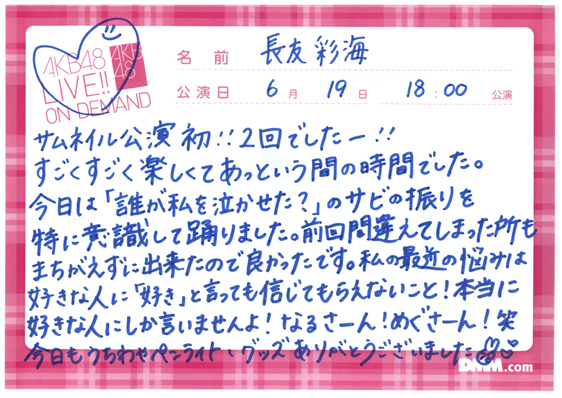 AKB48
LIVE!!
ON DEMAND
AKB
48
名前 長友彩海
公演日 6月 19日 18:00 公演
サムネイル公演初!!2回でしたー!!
すごくすごく楽しくてあっという間の時間でした。
今日は「誰が私を泣かせた?」のサビの振りを
特に意識して踊りました。前回間違えてしまった所も
まちがえずに出来たので良かったです。私の最近の悩みは
好きな人に「好き」と言っても信じてもらえないこと!本当に
好きな人にしか言いませんよ!なるさーん!めぐさーん!笑
今日もうちわやペンライト、グッズありがとうございました
DMM.com